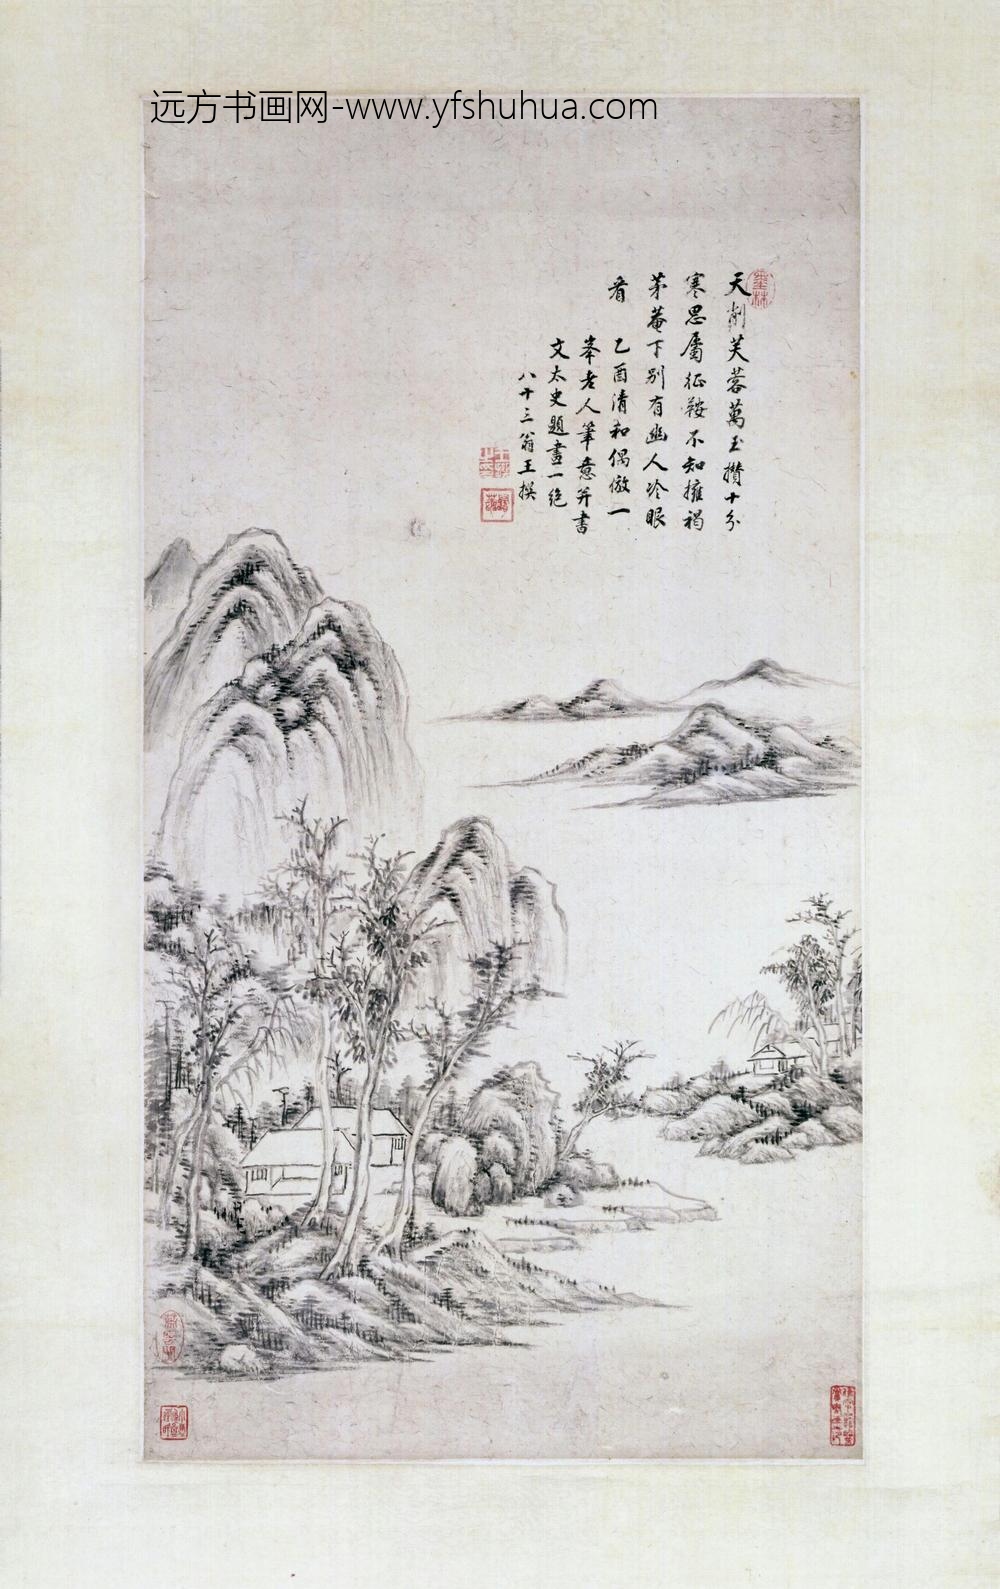 远方书画网-www.yfshuhua.com
天削芙蓉萬玉攢十分
寒思屬征鞍不知擁褐
茅菴下別有幽人冷眼
看
乙酉清和偶倣一
峯老人筆意并書
文太史題畫一絕
八十三翁王撰